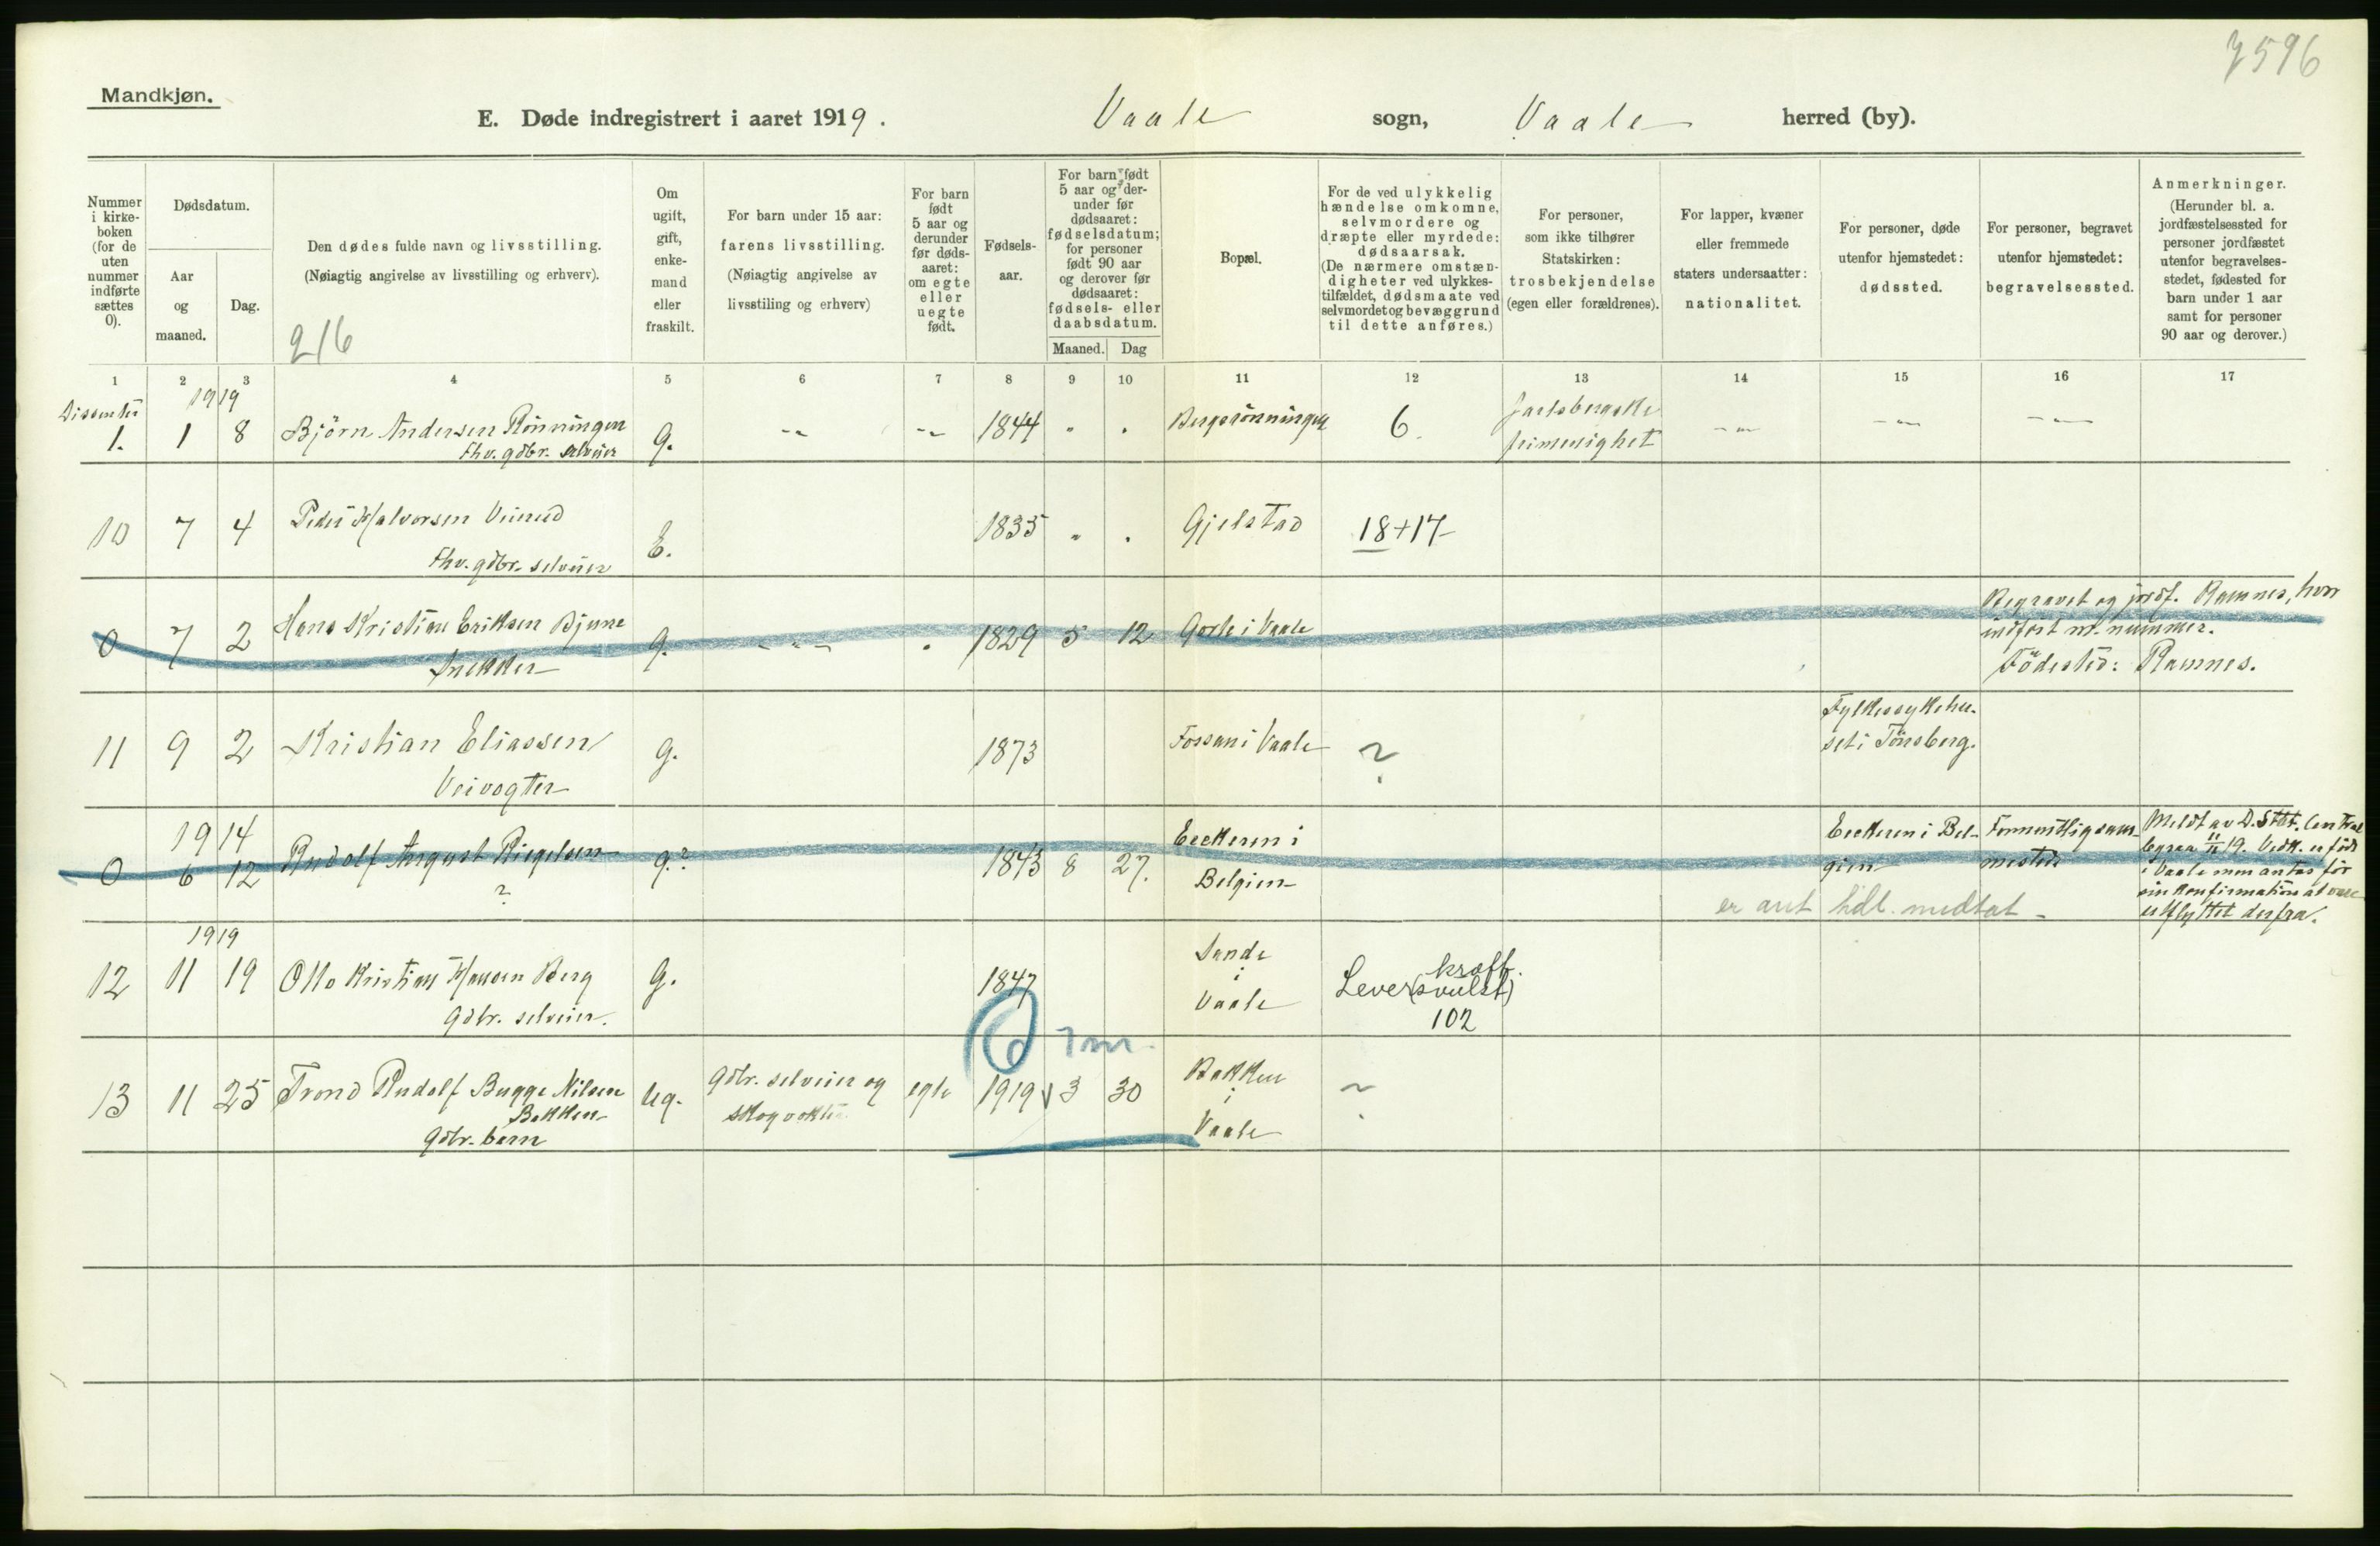 7596
Mandkjøn.
E. Døde indregistrert i aaret 1919. Vaale sogn, Vaale herred (by).
Nummer i kirke-boken (for de uten nummer indførte sættes 0).
Dødsdatum.
Aar og maaned.
Dag.
Den dødes fulde navn og livsstilling.
(Nøiagtig angivelse av livsstilling og erhverv).
216
Om ugift, gift, enke-mand eller fraskilt.
For barn under 15 aar:
farens livsstilling.
(Nøiagtig angivelse av livsstiling og erhverv)
For barn født 5 aar og derunder før døds-aaret: om egte eller uegte født.
Fødsels-aar.
For barn født 5 aar og der-under før dødsaaret: fødselsdatum; for personer født 90 aar og derover før dødsaaret: fødsels- eller daabsdatum.
Maaned. Dag
Bopæl.
For de ved ulykkelig hændelse omkomne, selvmordere og dræpte eller myrdede: dødsaarsak.
(De nærmere omstæn-digheter ved ulykkes-tilfældet, dødsmaate ved selvmordet og bevæggrund til dette anføres.)
For personer, som ikke tilhører Statskirken: trosbekjendelse (egen eller forældrenes).
For lapper, kvæner eller fremmede staters undersaatter: nationalitet.
For personer, døde utenfor hjemstedet: dødssted.
For personer, begravet utenfor hjemstedet: begravelsessted.
Anmerkninger.
(Herunder bl. a. jordfæstelsessted for personer jordfæstet utenfor begravelses-stedet, fødested for barn under 1 aar samt for personer 90 aar og derover.)
1 2 3 4 5 6 7 8 9 10 11 12 13 14 15 16 17
Dissenter 1919
1. 1 8 Björn Andersen Rönningen g. -„- -„- 1844 „ . Bergsrönningen 6. Jarlsbergske -„- -„- -„-
Fhv. gdbr. selveier frimenighet
10 7 4 Peder Halvorsen 1835 „ . Gjelstad 18+17
Fhv. gdbr. selveier E.
0 7 2 Hans Kristian Eriksen Bjune g. - „ - . 1829 5 12 i Vaale Begravet og jordf. Ramnes, hvor
indført m. nummer.
Snekker Födested: Ramnes.
11 9 2 Kristian Eliassen g. 1873 Fossan i Vaale ? Fylkessykehu-
set i Tönsberg.
Veivogter
1914
0 6 12 Rudolf August g.? 1843 8 27. Eeckeren i Eeckeren i Bel- Formentlig sam- Meldt av D. Stat. Central
? Belgien gien mesteds byraa 11/11 19. Vedk. er född
i Vaale men antas för
sin konfirmation at være
utflyttet derfra.
er ant hdl. medtat
1919
12 11 19 Otto Kristian Hansen Berg g. 1847 Sande Lever(svulst) kræft.
i
Gdbr. selveier. Vaale 102
7 m.
13 11 25 Trond Rudolf Bugge Nilsen Ug. Gdbr. selveier og egte 1919 3 30 Bakken ?
Bakken skogvokter i
Gdbr. barn Vaale